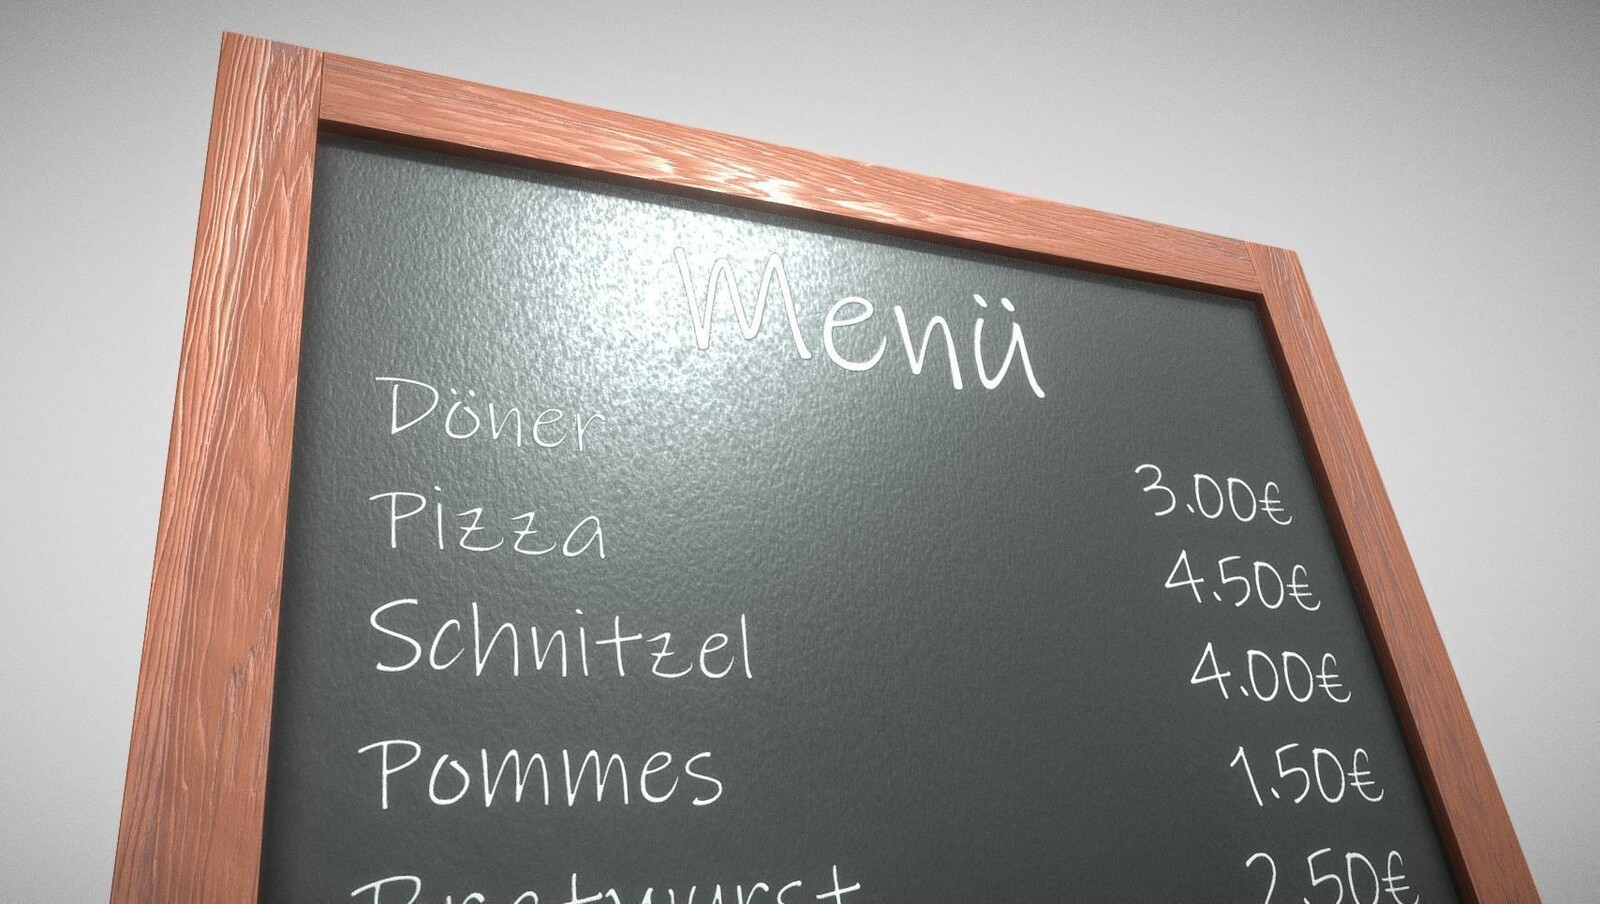 Menü
Döner 3.00€
Pizza 4.50€
Schnitzel 4.00€
Pommes 1.50€
Bratwurst 2.50€